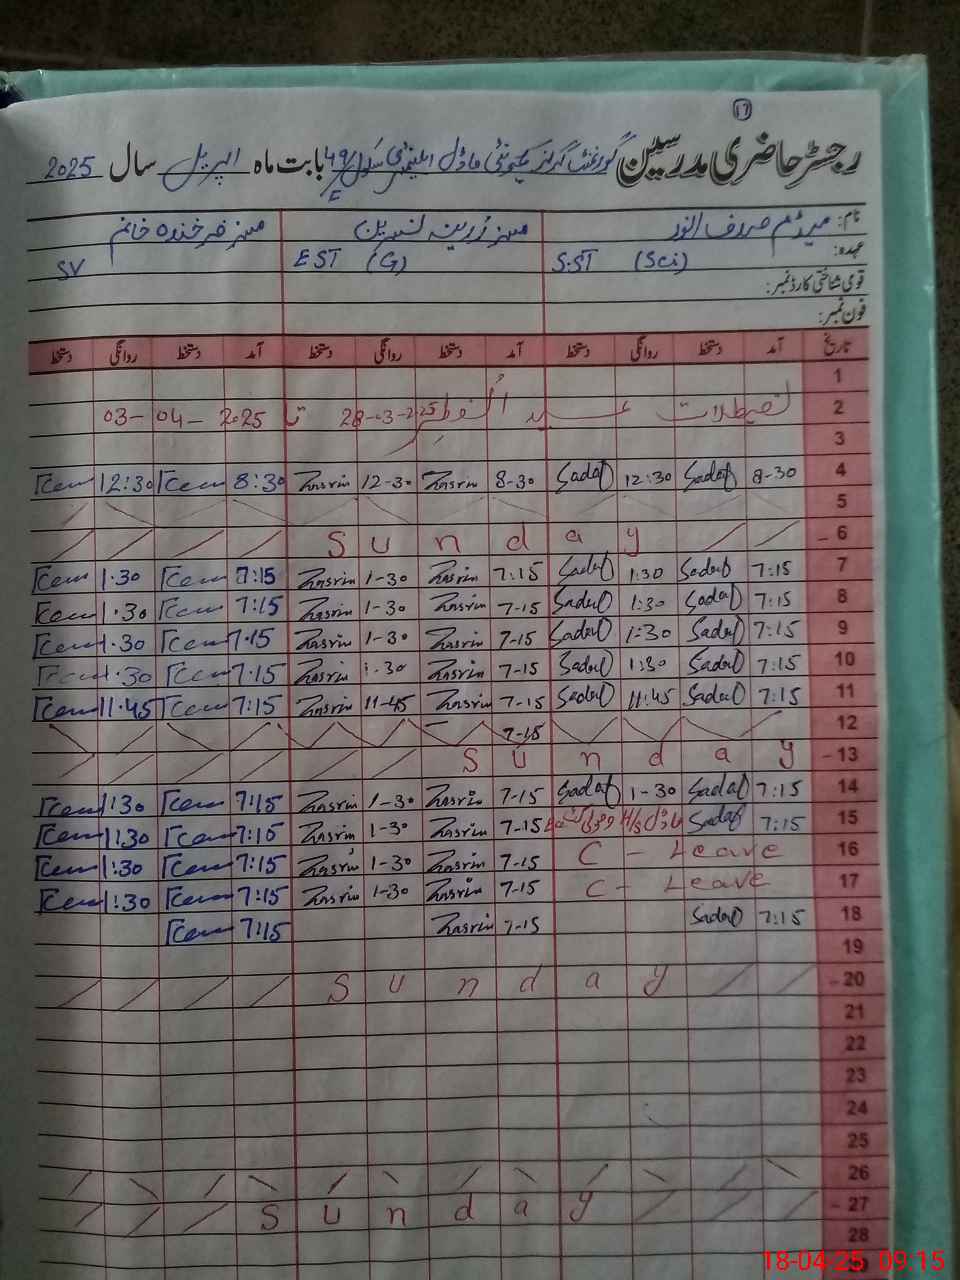 17
رجسٹر حاضری مدرسین گورنمنٹ گرلز کمیونٹی ماڈل ایلیمنٹری سکول 49/E بابت ماہ اپریل سال 2025
نام: میڈم صدف النور مسز زرینہ نسرین مسز فرخندہ خانم
عہدہ: S.ST (Sci) EST (G) SV
قومی شناختی کارڈ نمبر:
فون نمبر:
تاریخ آمد دستخط روانگی دستخط آمد دستخط روانگی دستخط آمد دستخط روانگی دستخط
1
2 تعطیلات عید الفطر 28-03-2025 تا 03-04-2025
3
4 8-30 Sadaf 12:30 Sadaf 8-30 Zasrin 12-30 Zasrin 8:30 12:30
5
6 Sunday
7 7:15 Sadaf 1:30 Sadaf 7:15 Zasrin 1-30 Zasrin 7:15 1.30
8 7:15 Sadaf 1:30 Sadaf 7-15 Zasrin 1-30 Zasrin 7:15 1.30
9 7:15 Sadaf 1:30 Sadaf 7-15 Zasrin 1-30 Zasrin 7.15 1.30
10 7:15 Sadaf 1:30 Sadaf 7-15 Zasrin 1-30 Zasrin 7.15 1.30
11 7:15 Sadaf 11:45 Sadaf 7-15 Zasrin 11-45 Zasrin 7:15 11.45
12 7-15
13 Sunday
14 7:15 Sadaf 1-30 Sadaf 7-15 Zasrin 1-30 Zasrin 7:15 1:30
15 7:15 Sadaf 7-15 Zasrin 1-30 Zasrin 7:15 1:30
16 C - Leave 7-15 Zasrin 1-30 Zasrin 7:15 1:30
17 C - Leave 7-15 Zasrin 1-30 Zasrin 7:15 1:30
18 7:15 Sadaf 7-15 Zasrin 7:15
19
20 Sunday
21
22
23
24
25
26
27 Sunday
28
18-04-25 09:15